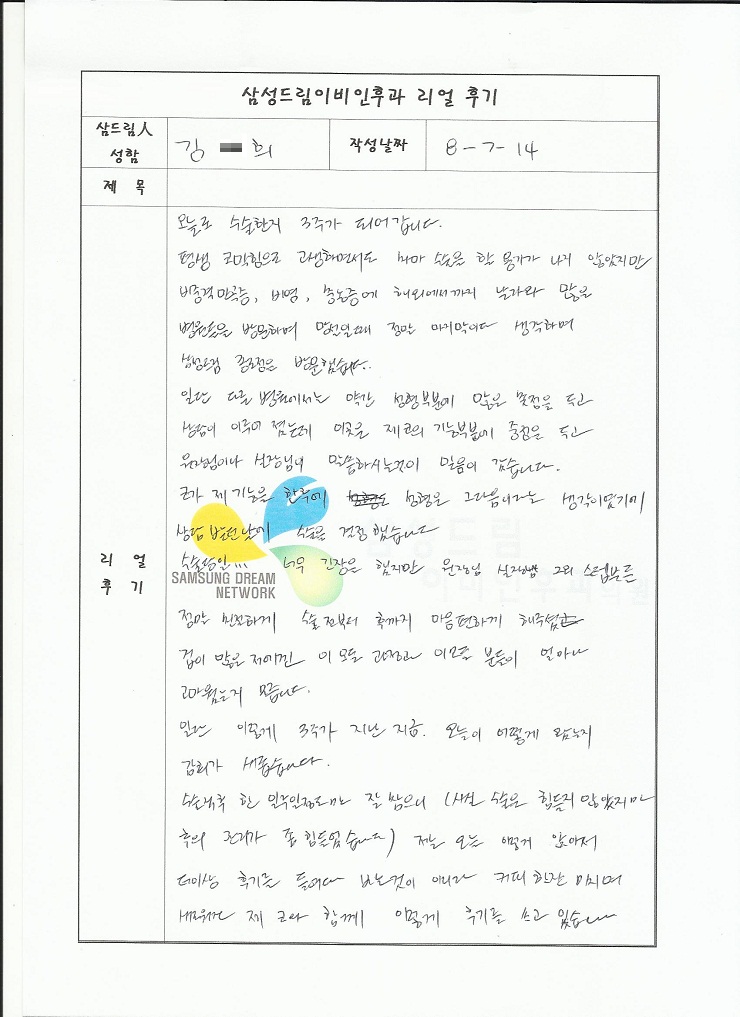 삼성드림이비인후과 리얼 후기
삼드림人
성함
김 희
작성날짜
8-7-14
제 목
오늘로 수술한지 3주가 되어갑니다.
평생 코막힘으로 고생하면서도 차마 수술을 할 용기가 나지 않았지만
비중격만곡증, 비염, 축농증에 해외에서까지 날아와 많은
병원들을 방문하며 망설일때 정말 마지막이다 생각하며
삼성드림 종로점을 방문했습니다.
일단 다른 병원에서는 약간 성형부분에 많은 초점을 두고
상담이 이루어 졌는데 이곳은 제 코의 기능부분에 중점을 두고
원장님이나 실장님이 말씀하시는것이 믿음이 갔습니다.
코가 제 기능을 한후에 성형은 그다음이라는 생각이였기에
상담 받던날에 수술을 결정 했습니다
수술당일... 너무 긴장은 했지만 원장님 실장님 그외 스텝분들
정말 친절하게 수술 전부터 후까지 마음편하게 해주셨고
겁이 많은 저에겐 이 모든 과정과 이모든 분들이 얼마나
고마웠는지 모릅니다.
일단 이렇게 3주가 지난 지금. 오늘이 어떻게 왔는지
감회가 새롭습니다.
수술직후 한 일주일정도만 잘 참으니 (사실 수술은 힘들지 않았지만
후의 관리가 좀 힘들었습니다) 저는 오늘 이렇게 앉아서
더이상 후기를 들여다 보는것이 아니라 커피 한잔 마시며
새로워진 제 코와 함께 이렇게 후기를 쓰고 있습니다
리 얼
후 기
SAMSUNG DREAM
NETWORK
삼성드림
이비인후과의원